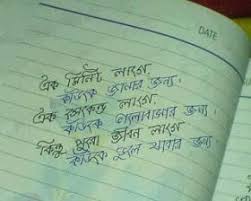 DATE
এক মিনিট লাগে
কাউকে জানার জন্য.
এক সেকেন্ড লাগে
কাউকে ভালোবাসার জন্য.
কিন্তু পুরো জীবন লাগে
কাউকে ভুলে যাবার জন্য